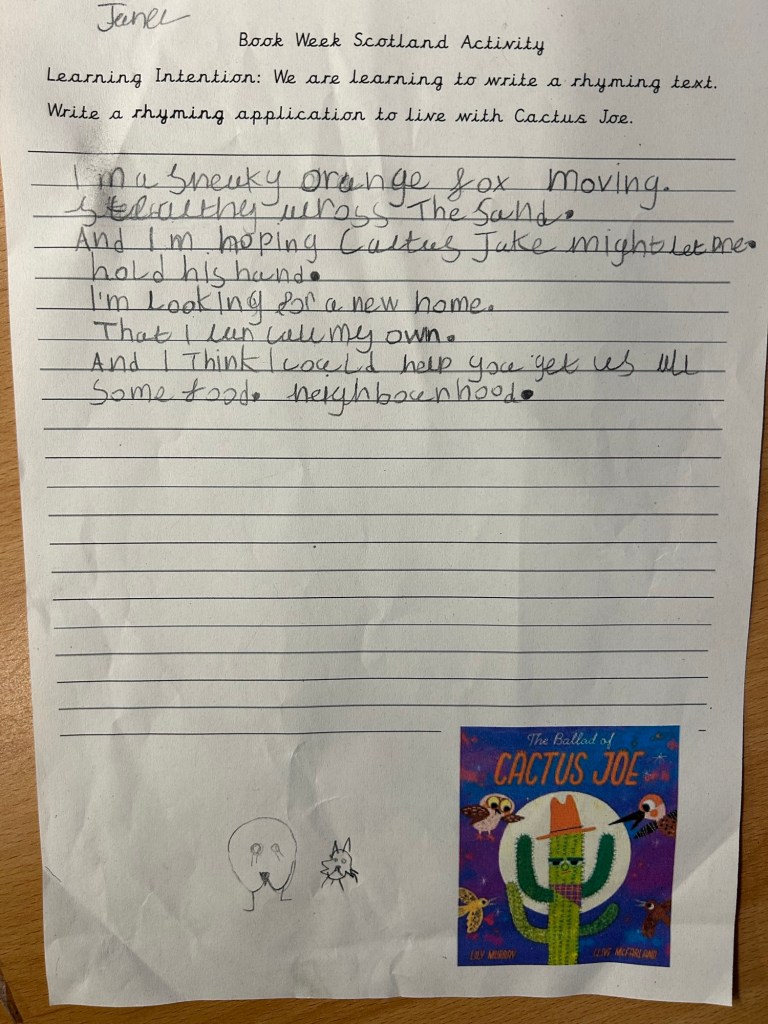 Janel
Book Week Scotland Activity
Learning Intention: We are learning to write a rhyming text.
Write a rhyming application to live with Cactus Joe.
I'm a Sneaky orange fox moving.
Stealthy across The Sand.
And I'm hoping Cactus Jake might let me.
hold his hand.
I'm looking for a new home.
That I can call my own.
And I Think I could help you get us all
Some food. neighbourhood.
The Ballad of
CACTUS JOE
LILY MURRAY CLIVE MCFARLAND